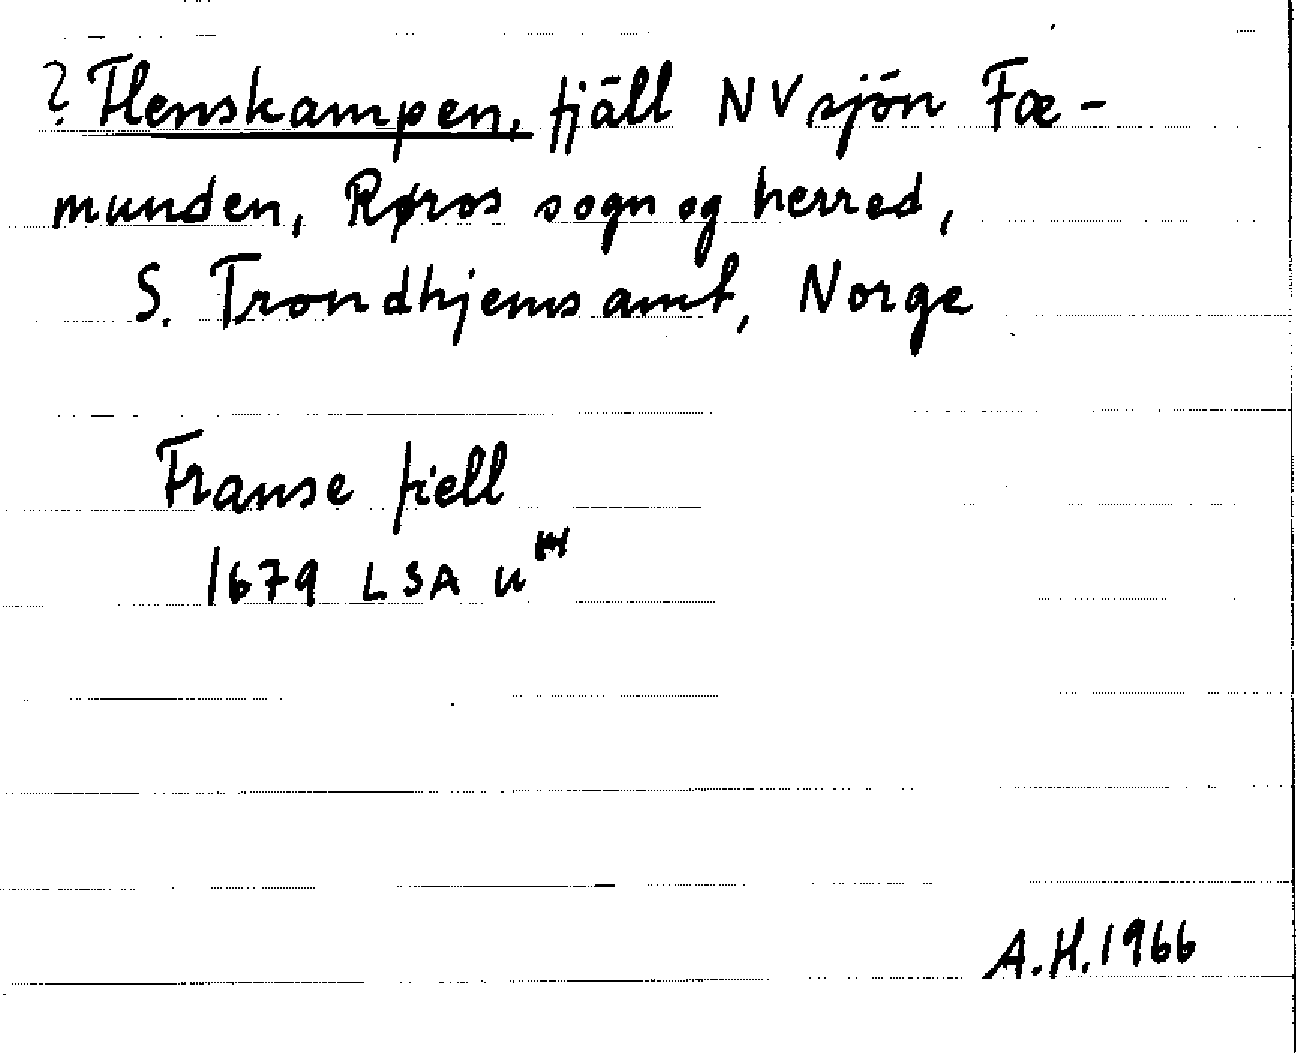 ? Flenskampen, fjäll NV sjön Fæ-
munden, Røros sogn og herred,
S. Trondhjems amt, Norge
Franse fiell
1679 LSA u
A.H. 1966